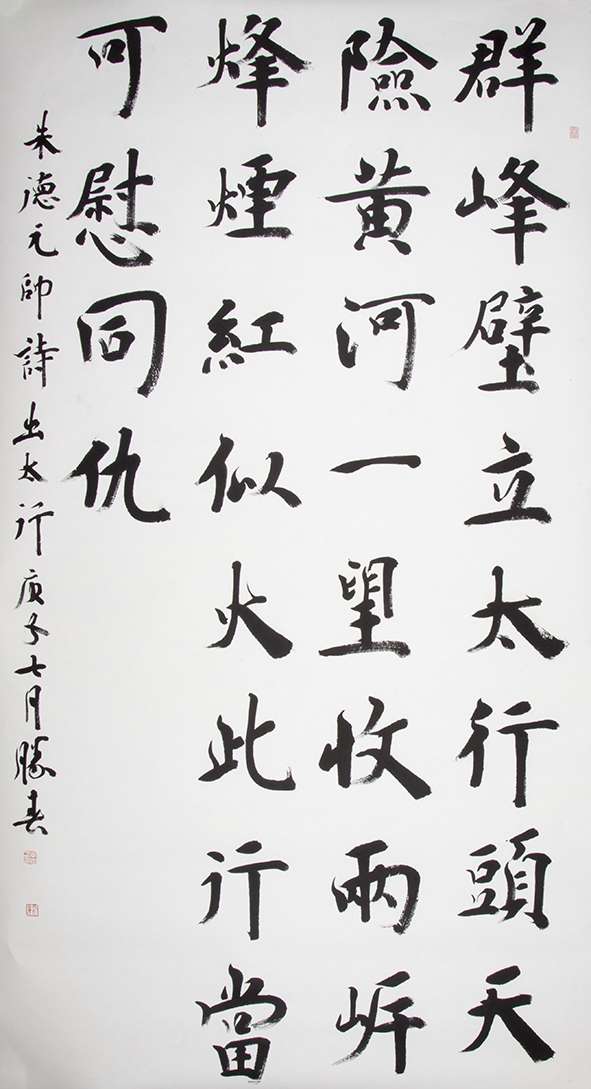 群峰壁立太行頭天
險黄河一望收兩岸
烽煙紅似火此行當
可慰同仇
朱德元帥詩出太行庚子七月勝春